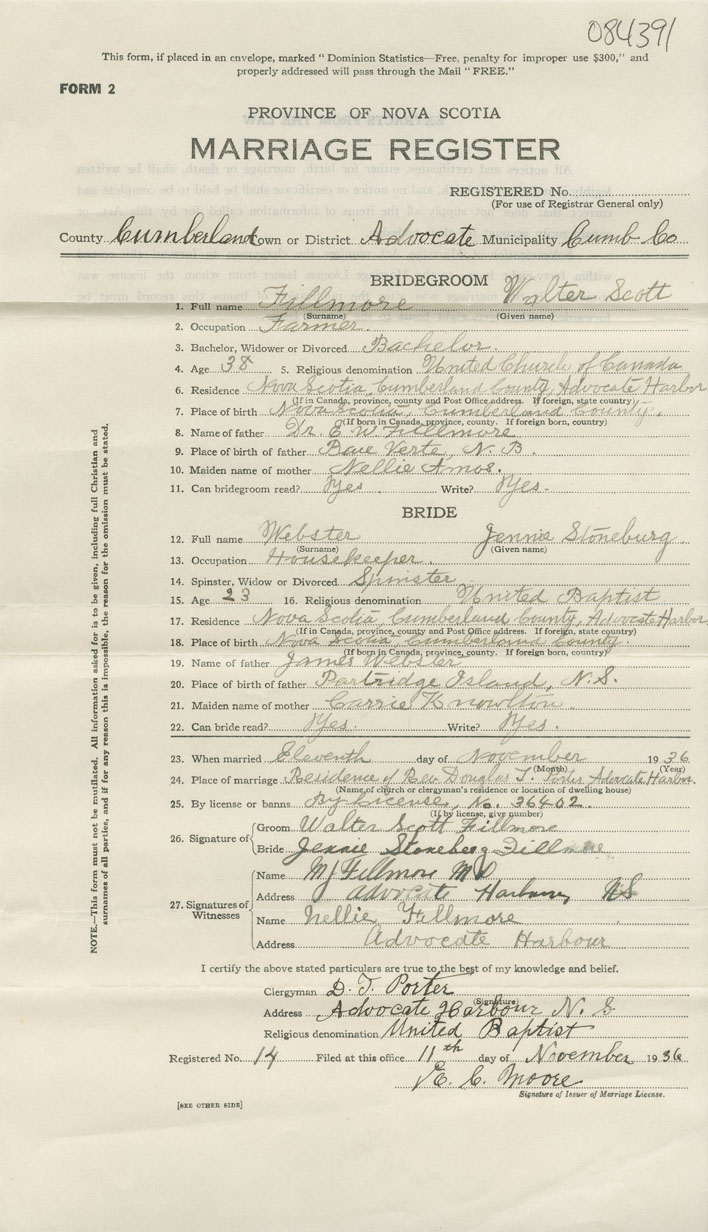 084391
This form, if placed in an envelope, marked "Dominion Statistics—Free, penalty for improper use $300," and
properly addressed will pass through the Mail "FREE."
FORM 2
PROVINCE OF NOVA SCOTIA
MARRIAGE REGISTER
REGISTERED No.
(For use of Registrar General only)
County Cumberland Town or District Advocate Municipality Cumb Co
BRIDEGROOM
1. Full name Fillmore Walter Scott
(Surname) (Given name)
2. Occupation Farmer.
3. Bachelor, Widower or Divorced Bachelor.
4. Age 38 5. Religious denomination United Church of Canada
6. Residence Nova Scotia, Cumberland County, Advocate Harbor
(If in Canada, province, county and Post Office address. If foreign, state country)
7. Place of birth Nova Scotia, Cumberland County.
(If born in Canada, province, county. If foreign born, country)
8. Name of father Dr. E. W. Fillmore.
9. Place of birth of father Baie Verte, N. B.
10. Maiden name of mother Nellie Amos.
11. Can bridegroom read? Yes Write? Yes.
BRIDE
12. Full name Webster Jennie Stoneburg.
(Surname) (Given name)
13. Occupation Housekeeper.
14. Spinster, Widow or Divorced Spinster
15. Age 23 16. Religious denomination United Baptist
17. Residence Nova Scotia, Cumberland County, Advocate Harbor
(If in Canada, province, county and Post Office address. If foreign, state country)
18. Place of birth Nova Scotia, Cumberland County.
(If born in Canada, province, county. If foreign born, country)
19. Name of father James Webster
20. Place of birth of father Partridge Island, N.S.
21. Maiden name of mother Carrie Knowlton
22. Can bride read? Yes. Write? Yes.
23. When married Eleventh day of November 1936
(Month) (Year)
24. Place of marriage Residence of Rev. Douglas T. Porter Advocate Harbor.
(Name of church or clergyman's residence or location of dwelling house)
25. By license or banns By License, No. 36402.
(If by license, give number)
26. Signature of
Groom Walter Scott Fillmore
Bride Jennie Stoneberg Fillmore
27. Signatures of Witnesses
Name Fillmore MD
Address Advocate Harbour NS
Name Nellie Fillmore
Address Advocate Harbour
I certify the above stated particulars are true to the best of my knowledge and belief.
Clergyman D. T. Porter
(Signature)
Address Advocate Harbour N. S
Religious denomination United Baptist
Registered No. 14 Filed at this office 11th day of November 1936
E. C. Moore
Signature of Issuer of Marriage License.
[SEE OTHER SIDE]
NOTE.—This form must not be mutilated. All information asked for is to be given, including full Christian and
surnames of all parties, and if for any reason this is impossible, the reason for the omission must be stated.